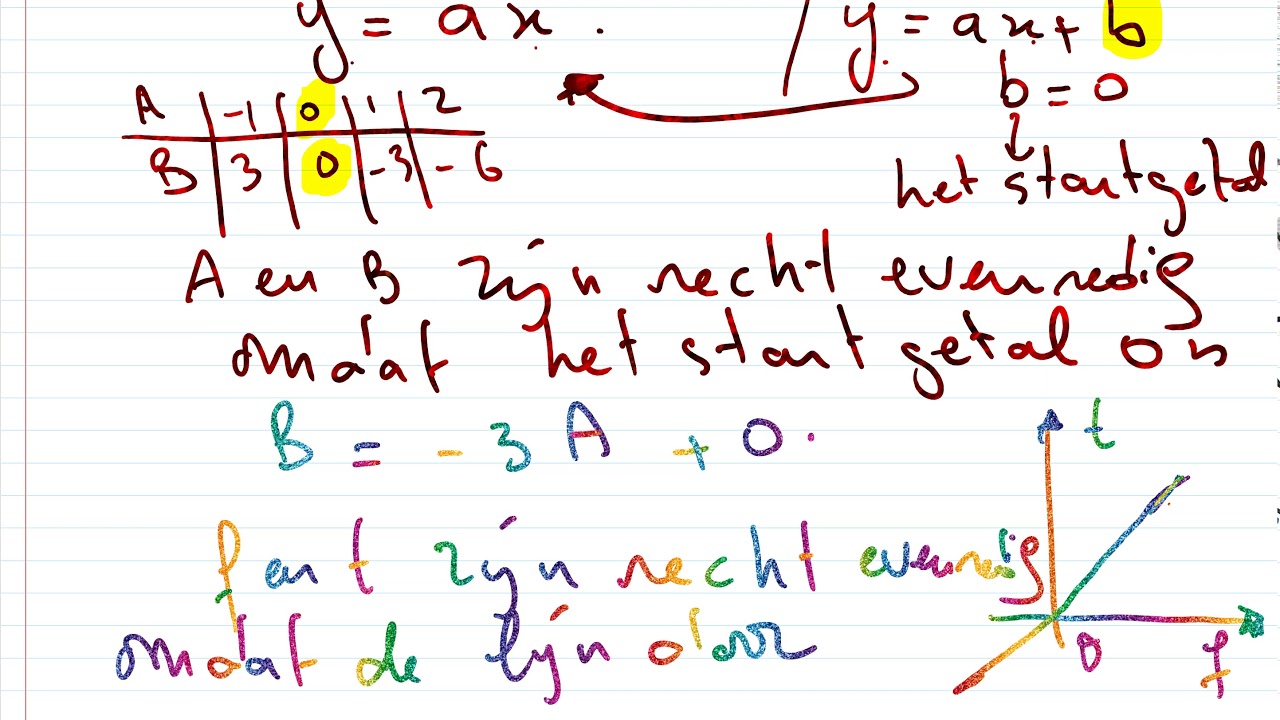 y = ax.
y = ax + b
b = 0
het startgetal
A -1 0 1 2
B 3 0 -3 -6
A en B zijn recht evenredig
omdat het startgetal 0 is
B = -3A + 0.
f en t zijn recht evenredig
omdat de lijn door
t
0 f